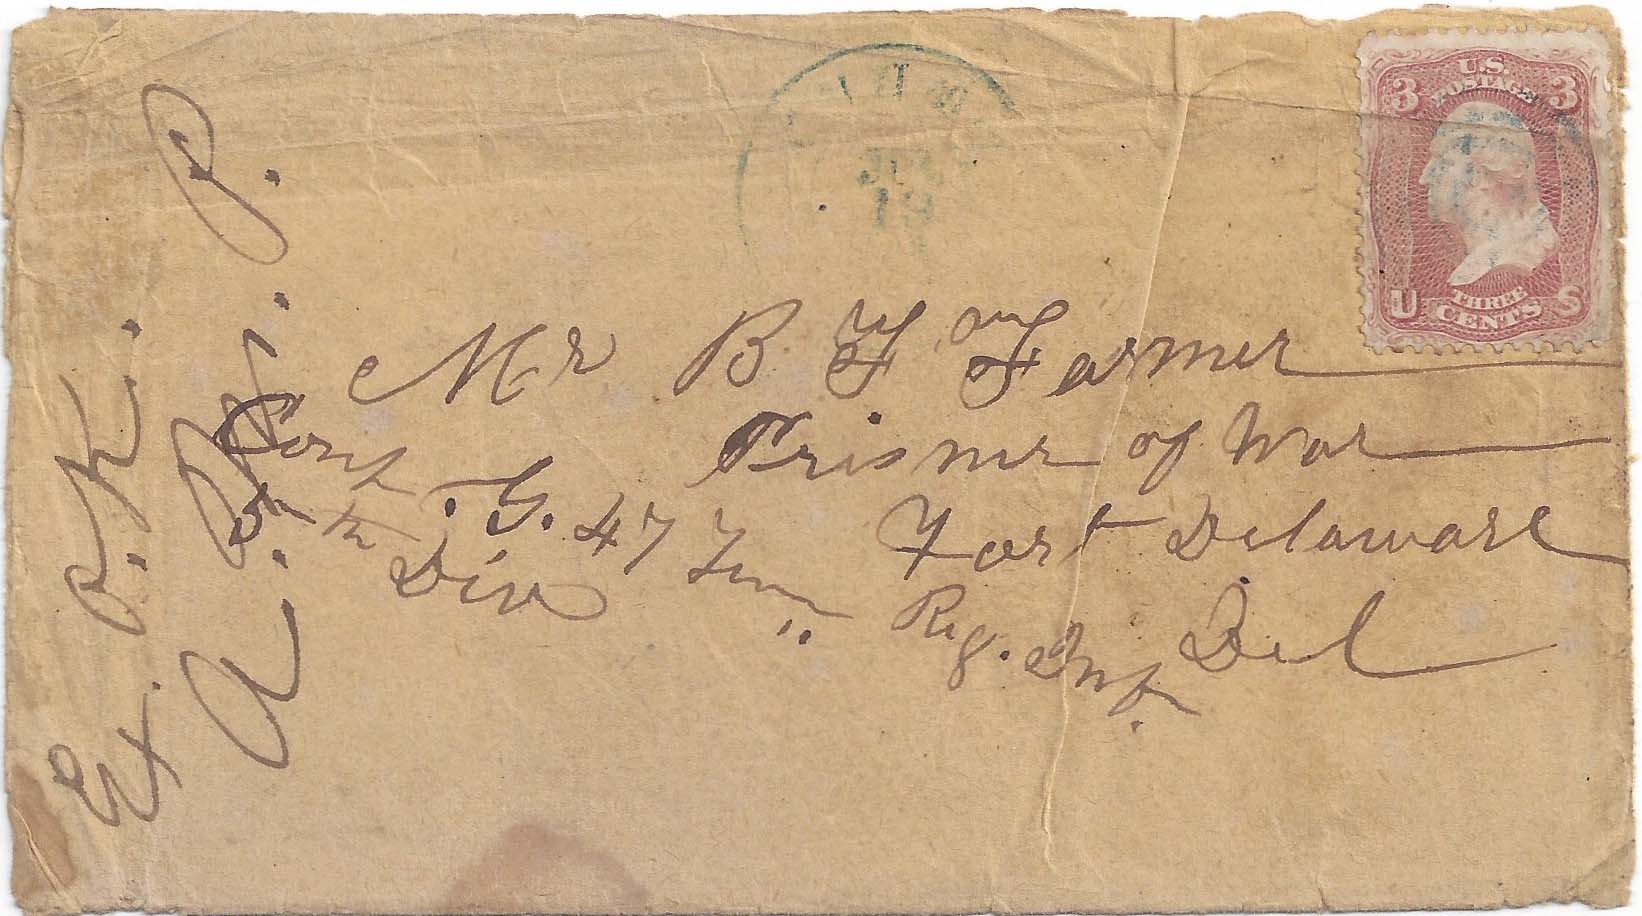 U.S.
POSTAGE
3 3
U S
THREE
CENTS
JU
19
Mr B F Farmer
Prisner of War
Fort Delaware
Del
Comp. G. 47 Tenn Reg. Inf.
Div
Ex. O.K.
A. P.